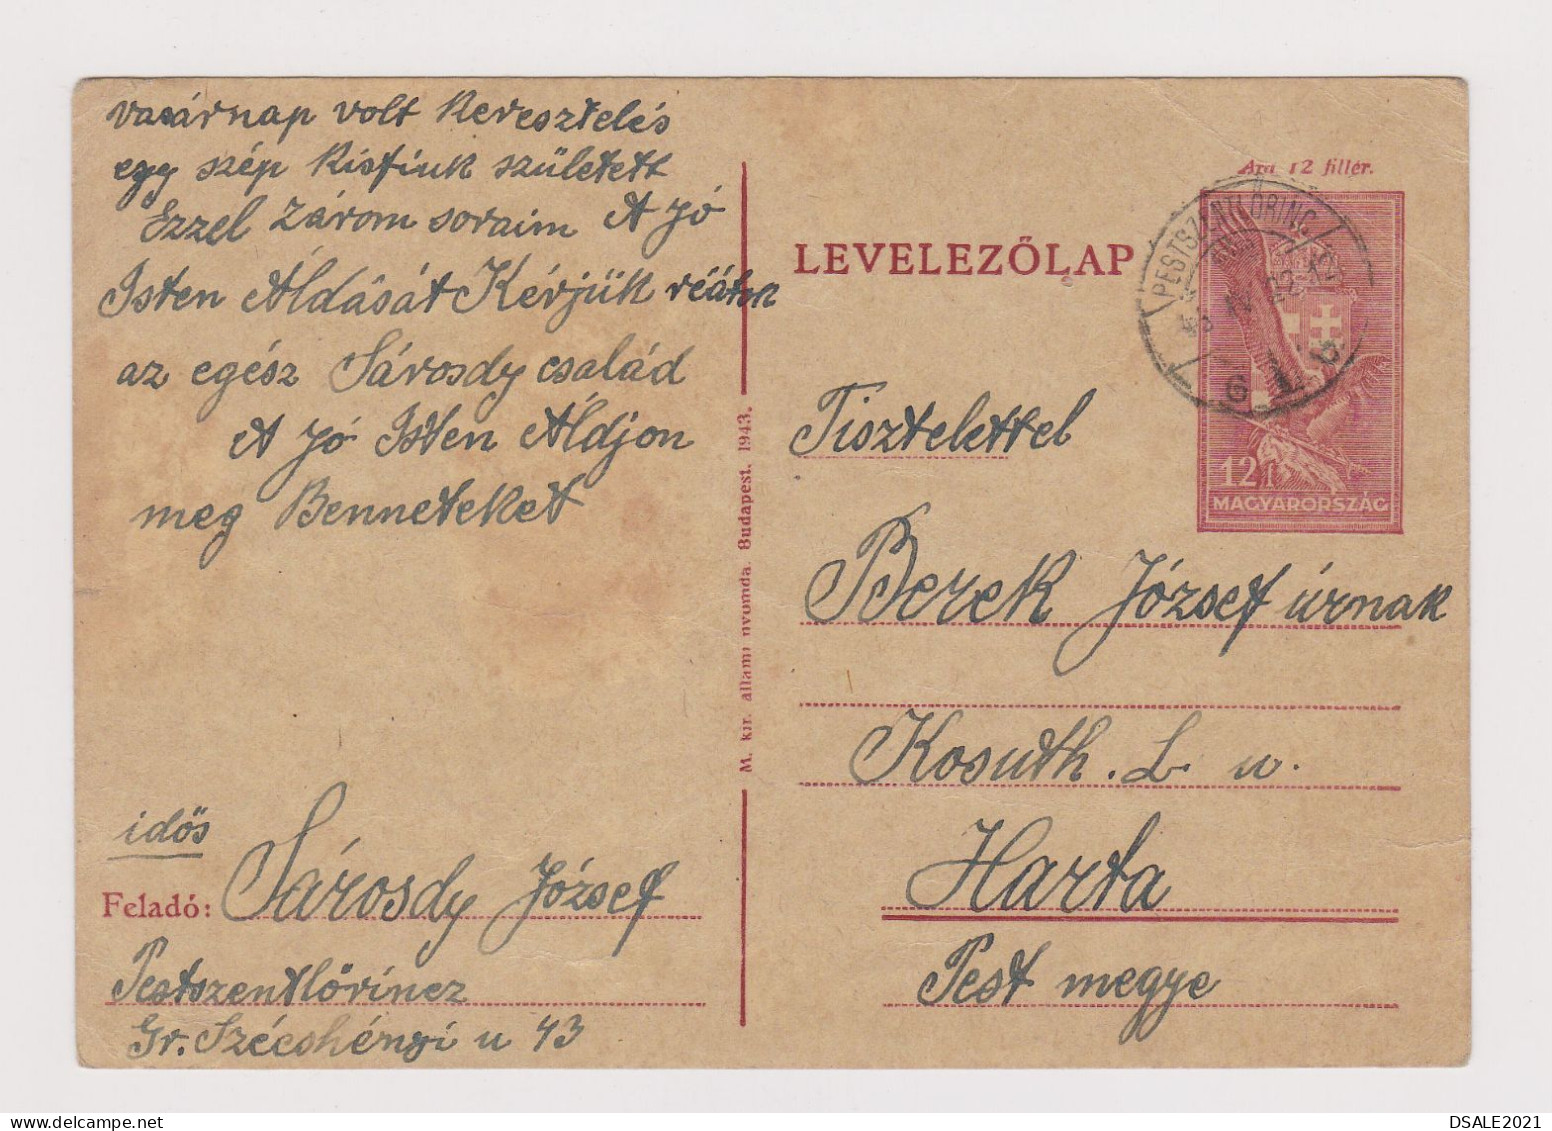 vasárnap volt Keresztelés
egy szép Kisfiuk született
Ezzel Zárom soraim A Jó
Isten Áldását Kérjük réátok
az egész Sárosdy család
A Jó Isten Áldjon
meg Benneteket
idős
Feladó: Sárosdy József
Pestszentlőrincz
Gr. Szécshényi u 43
M. kir. állami nyomda. Budapest. 1943.
Ára 12 fillér.
LEVELEZŐLAP
PESTSZENTLŐRINC
IV. 22
6
12 f
MAGYARORSZÁG
Tisztelettel
Berek József úrnak
Kosuth. L u.
Harta
Pest megye
DSALE2021